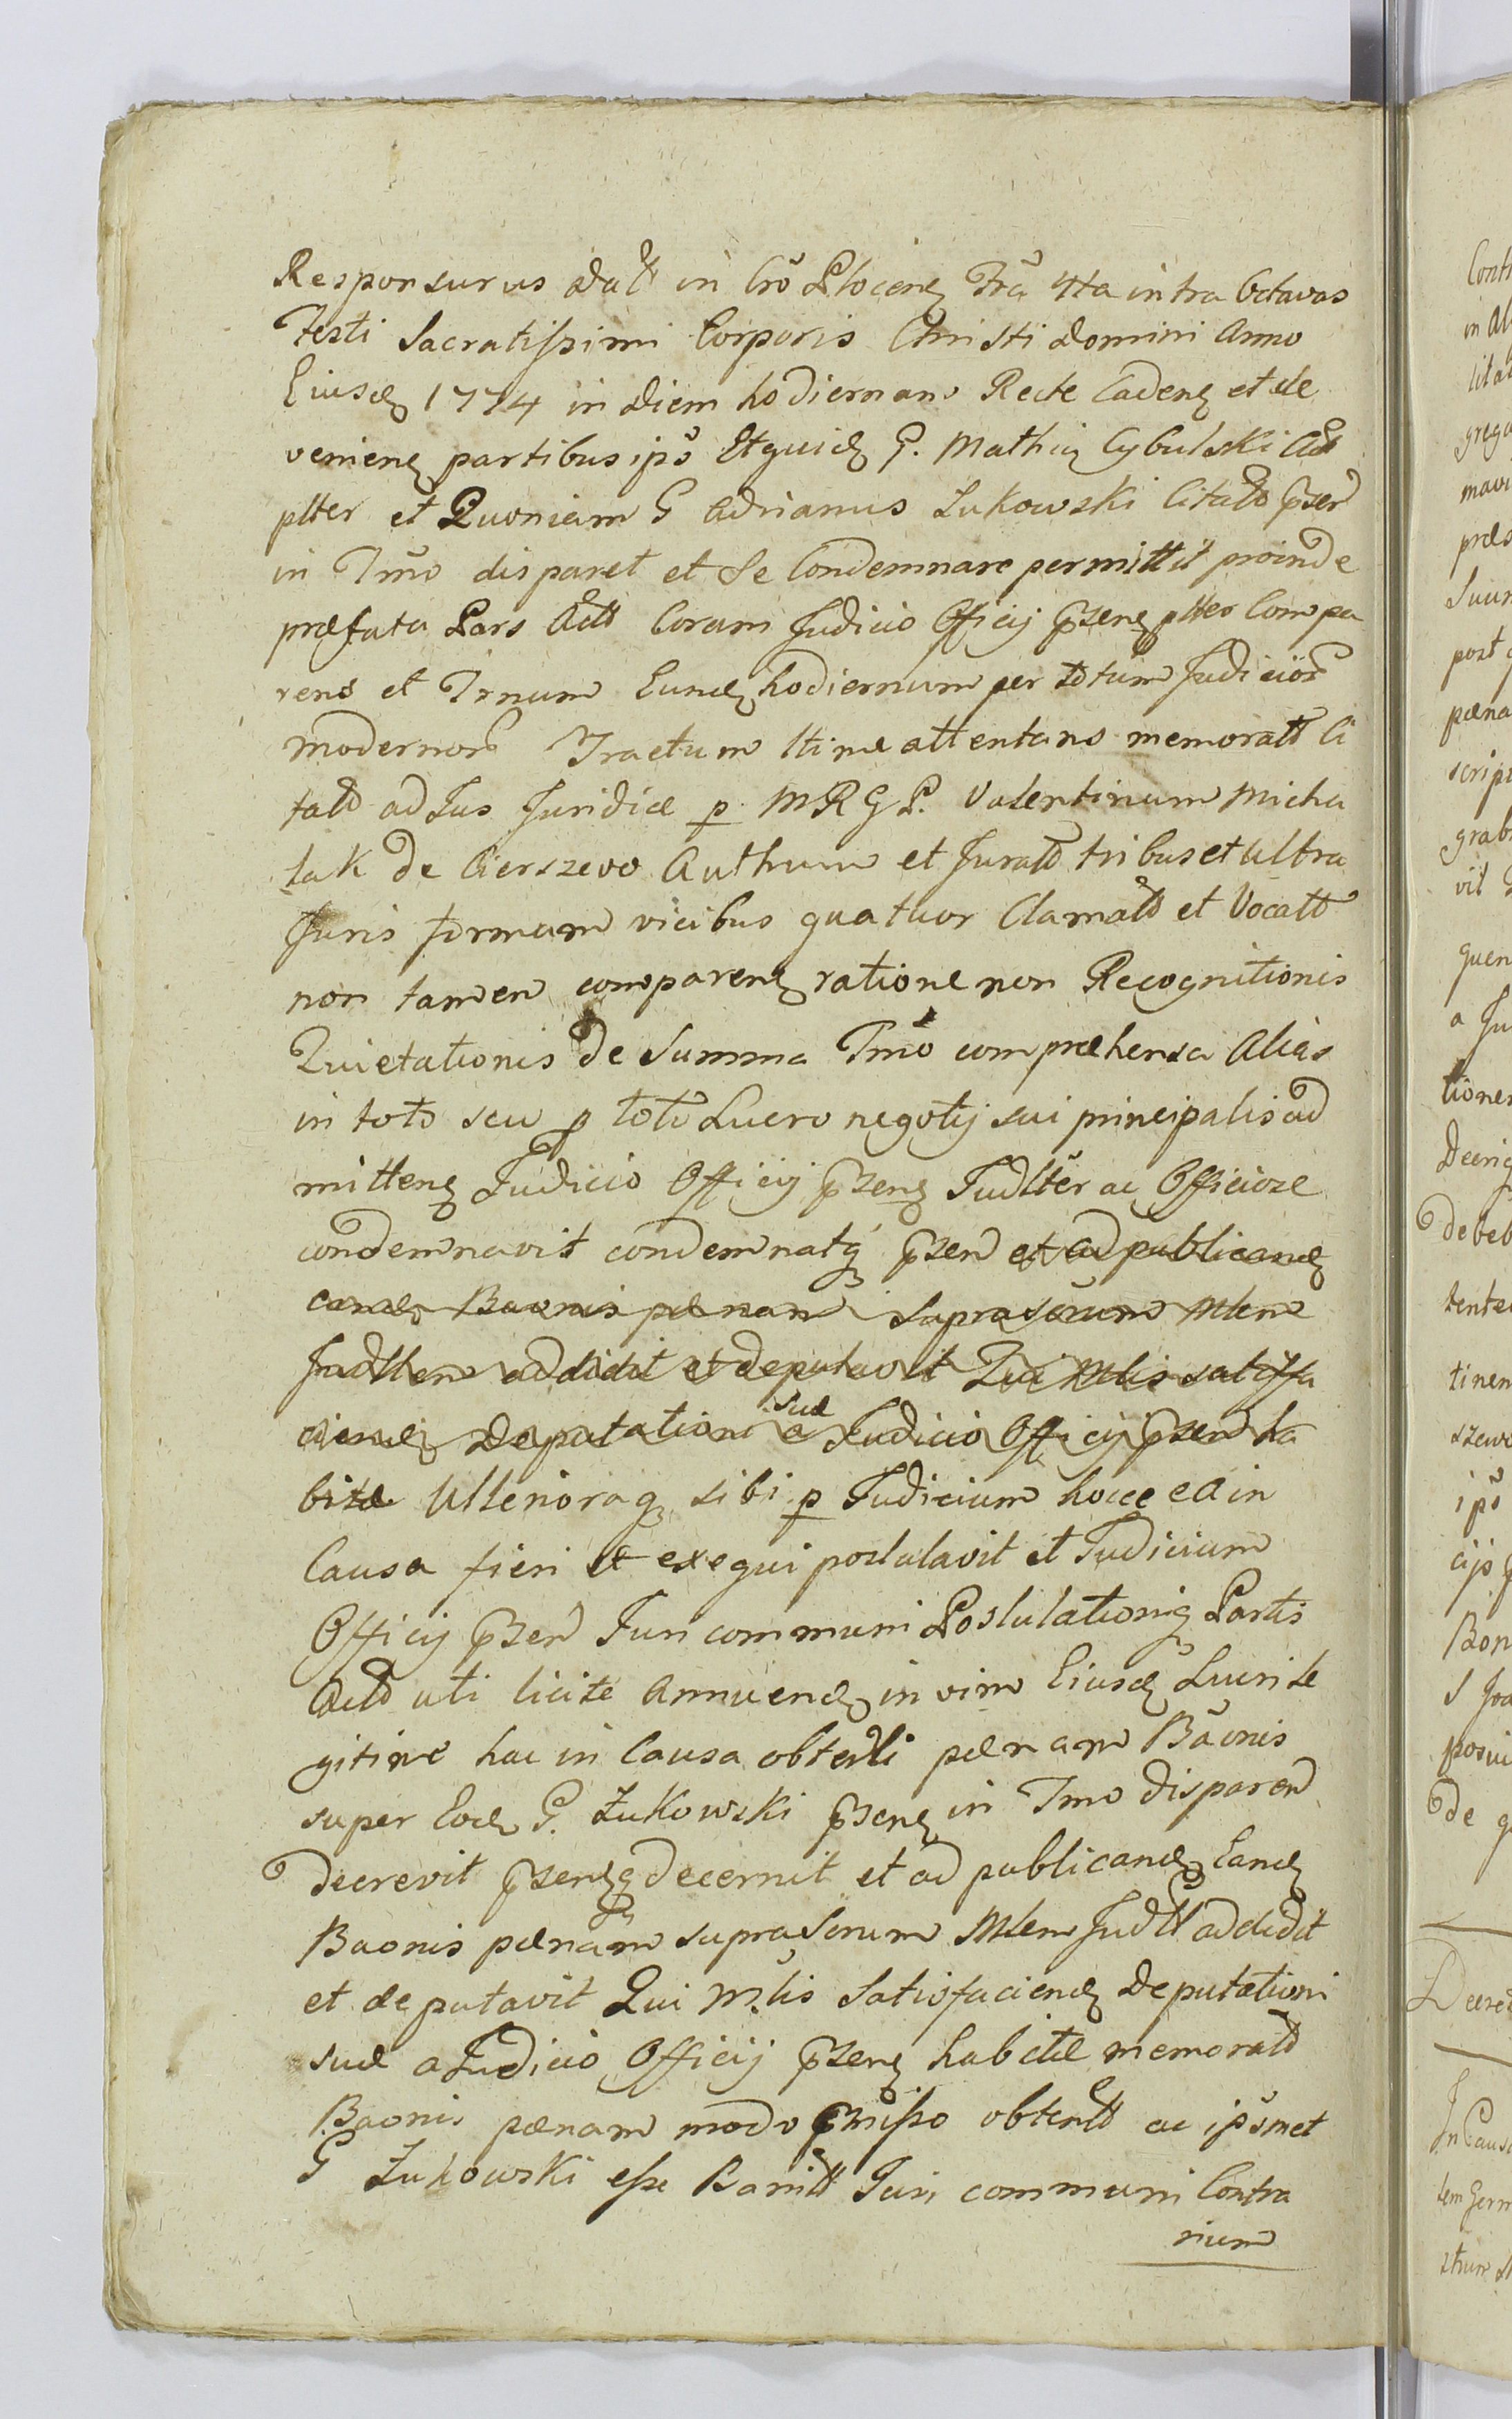 Responsurus Datt in Cro Plocens Fra 4ta intra Octavas
Festi Sacratissimi Corporis Christi Domini Anno
Eiusd 1774 in diem hodiernam Recte Cadens et de
veniens partibus ips Et quid G. Mathia Cybulski Act
plter et Quoniam G Adrianus Łukowski Citatt pzen
in Tmo disparet et Se Condemnare permittit proinde
præfata Pars Act Coram Judicio Officij pzens plter Compa
rens et Trnum Eund hodiernum per totum Judicior
modernor Tractum ltime attentans memoratt Ci
tatt ad Jus Juridice p MRGP. Valentinum Micha
lak de Cierszewo Authum et Juratt tribus et ultra
Juris formam vicibus quatuor Clamatt et Vocatt
non tamen comparens ratione non Recognitionis
Quietationis de Summa Tmo compræhensa Alias
in toto seu p toto Lucro negotij sui principalis ad
mittens Judicio Officij pzens Judlter ac Officiose
condemnavit condemnatq pzen et ad publicand
eand Baonis pœnam suprascrum Mlem
Judlem addidit et deputavit Qui Mlis satisfa
ciend Deputationi suæ a Judicio Officij pzen ha
bitæ Ulterioraq sibi p Judicium hocce ea in
Causa fieri et exequi postulavit et Judicium
Officij pzen Juri communi Postulationiq Partis
Act uti licite Annuend in vim Eiusd Lucri le
gitime hac in Causa obtenti pœnam Baonis
super Eod G. Łukowski pzens in Tmo disparen
decrevit pzensq decernit et ad publicand Eand
Baonis pœnam suprascrum Mlem Judll addidit
et deputavit Qui Mlis Satisfaciend Deputationi
suæ a Judicio Officij pzens habitæ memoratt
Baonis pœnam modo pmisso obtentt ac ipsmet
G Łukowski esse Banitt Juri communi Contra
rium